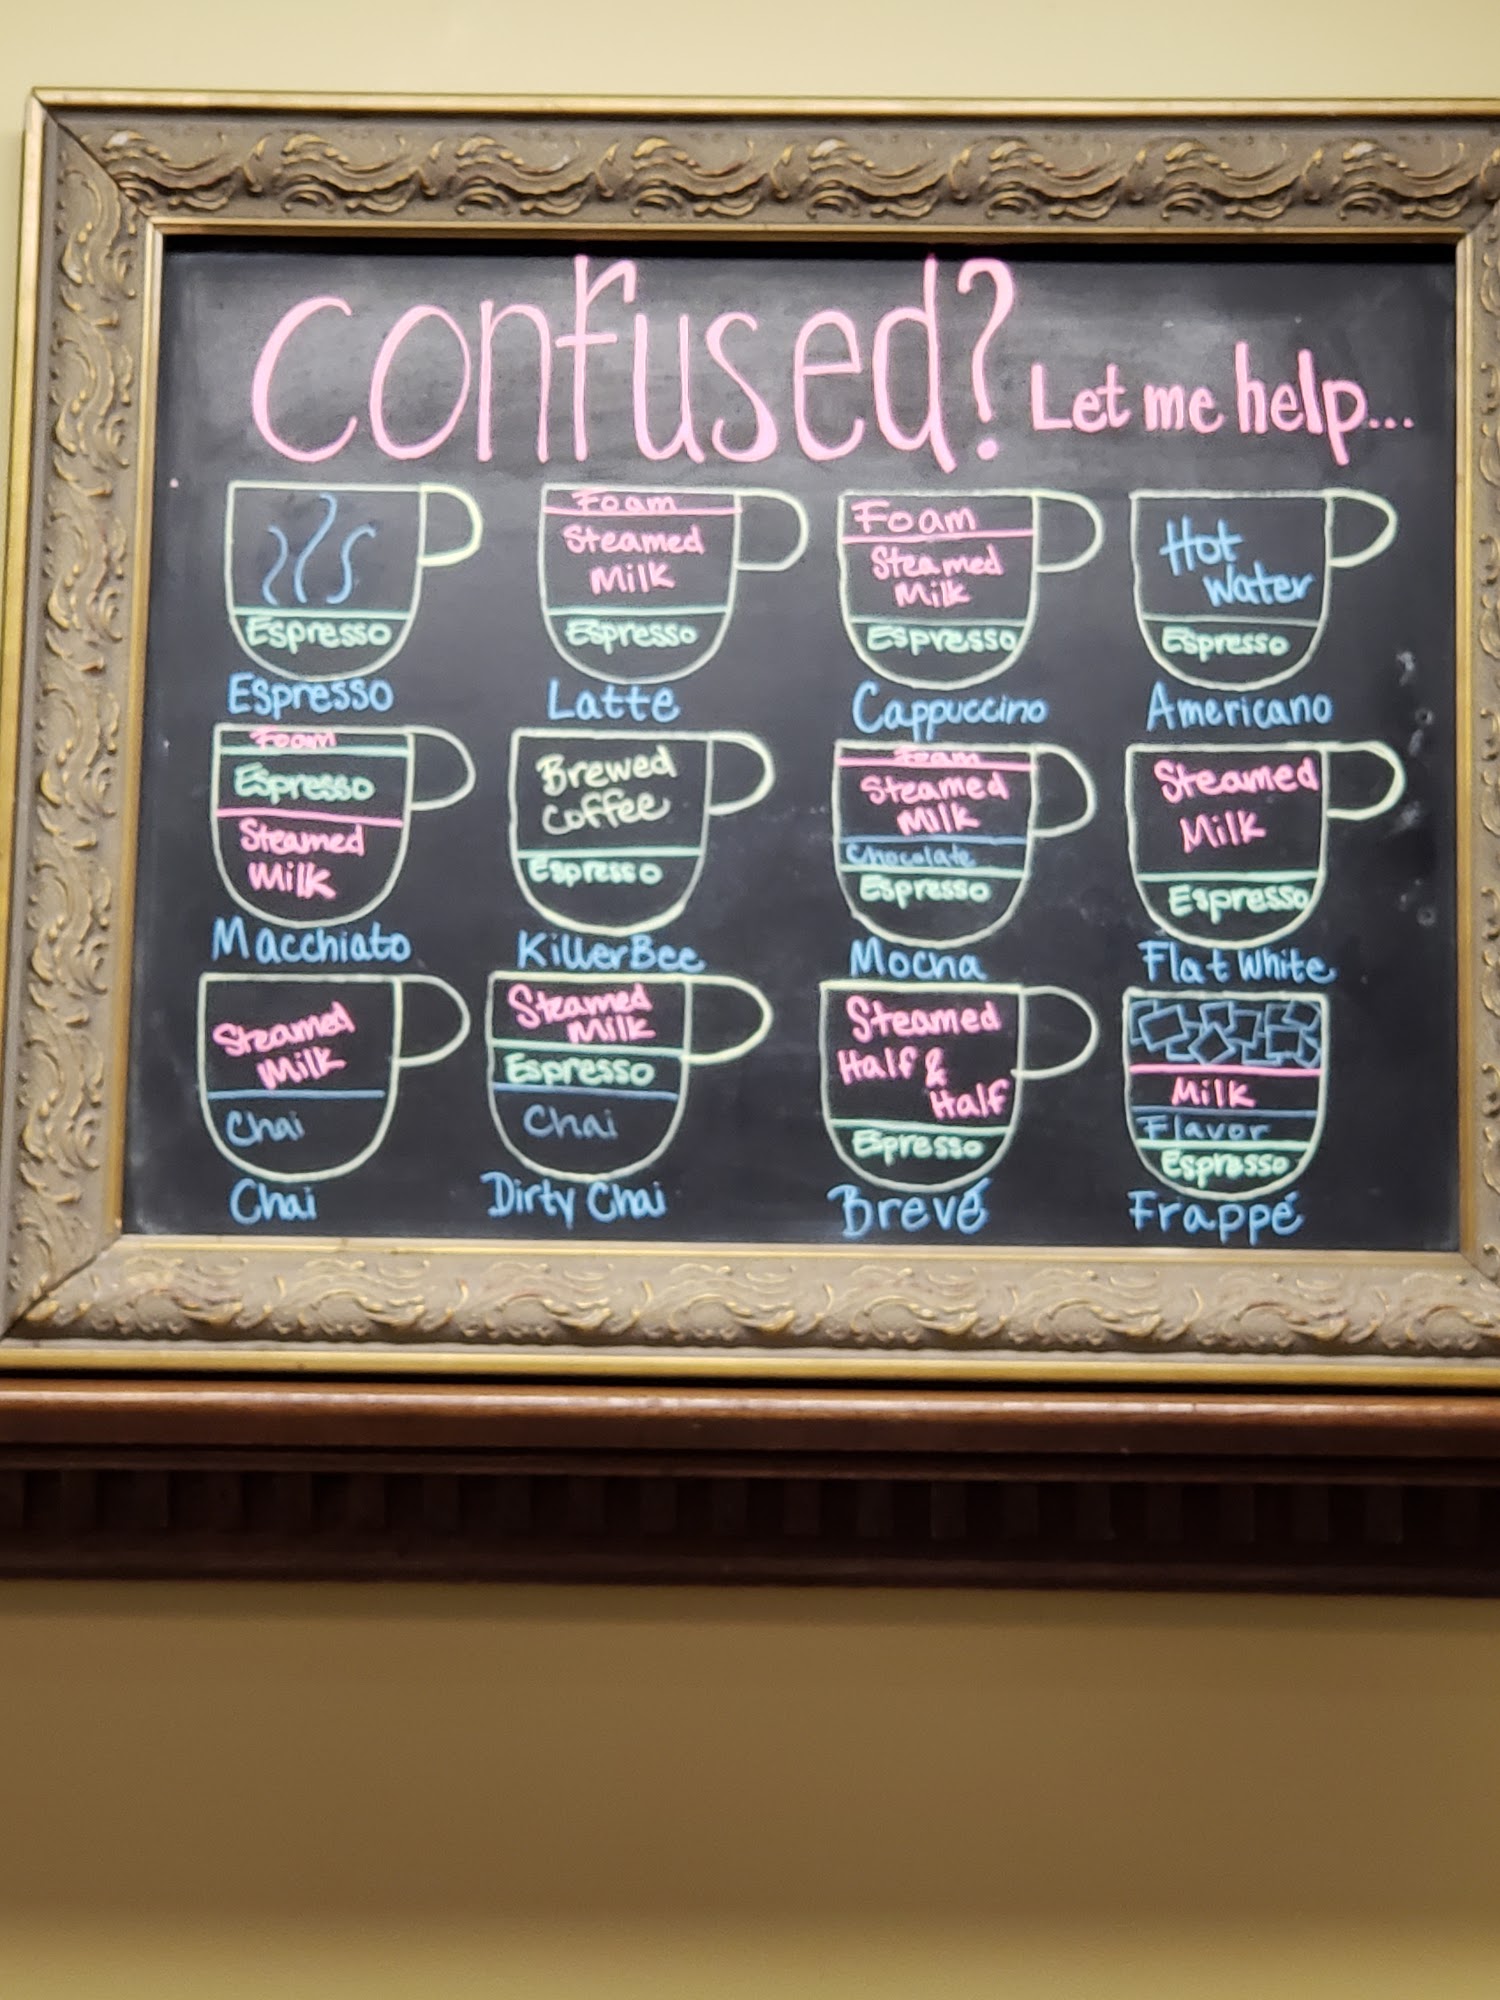 Confused? Let me help...
Espresso
Espresso
Foam
Steamed
Milk
Espresso
Latte
Foam
Steamed
Milk
Espresso
Cappuccino
Hot
Water
Espresso
Americano
Foam
Espresso
Steamed
Milk
Macchiato
Brewed
Coffee
Espresso
KillerBee
Foam
Steamed
Milk
Chocolate
Espresso
Mocha
Steamed
Milk
Espresso
Flat White
Steamed
Milk
Chai
Chai
Steamed
Milk
Espresso
Chai
Dirty Chai
Steamed
Half &
Half
Espresso
Brevé
Milk
Flavor
Espresso
Frappé